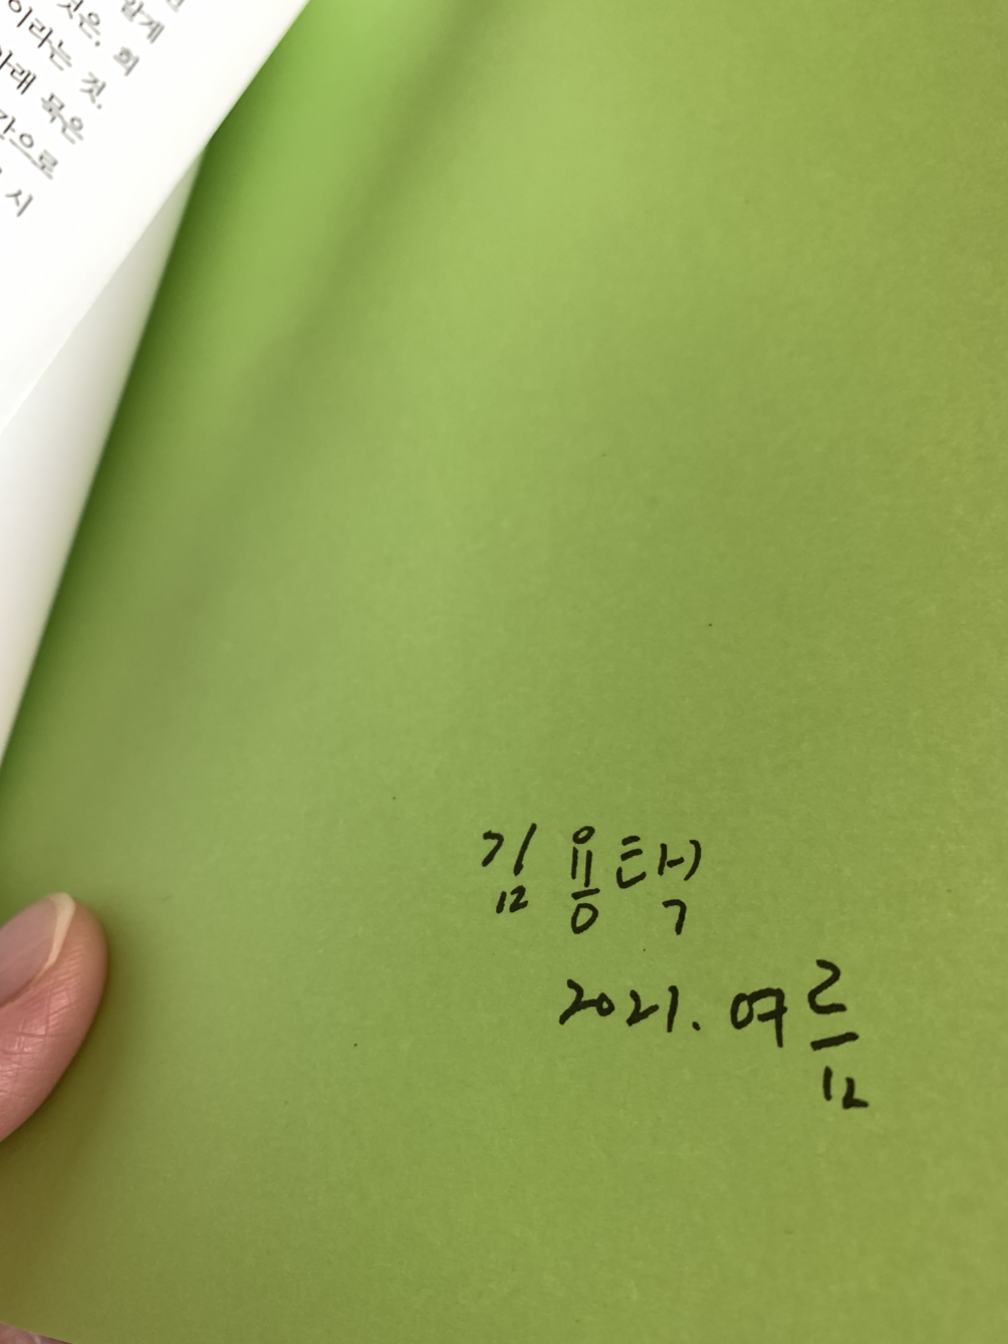 맑게
것은, 회
이라는 것.
아래 묶은
간으로
시
김융택
2021. 07 름